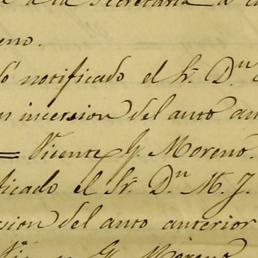 a la Secretaria a
eno.
notificado el Sr. Dn.
incersion del auto an
= Vicente G. Moreno.
ficado el Sr. Dn. M. J.
sion del auto anterior
G. Moreno